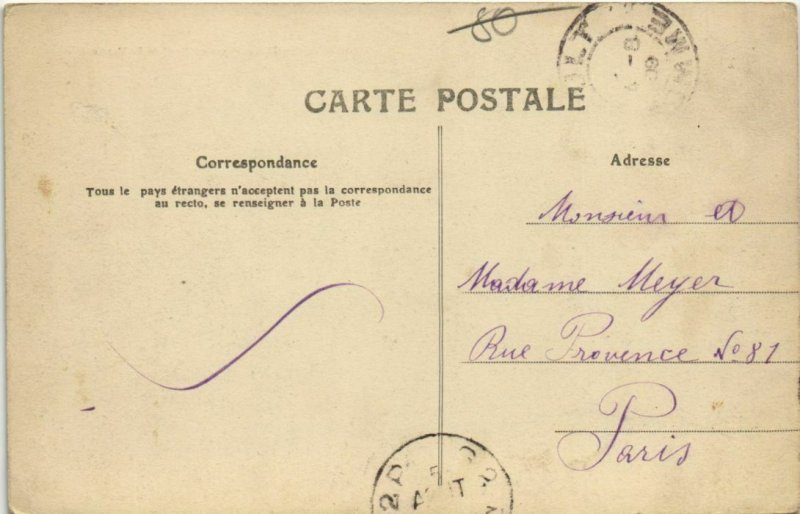 80
CARTE POSTALE
Correspondance
Tous le pays étrangers n'acceptent pas la correspondance
au recto, se renseigner à la Poste
Adresse
Monsieur et
Madame Meyer
Rue Provence No 81
Paris